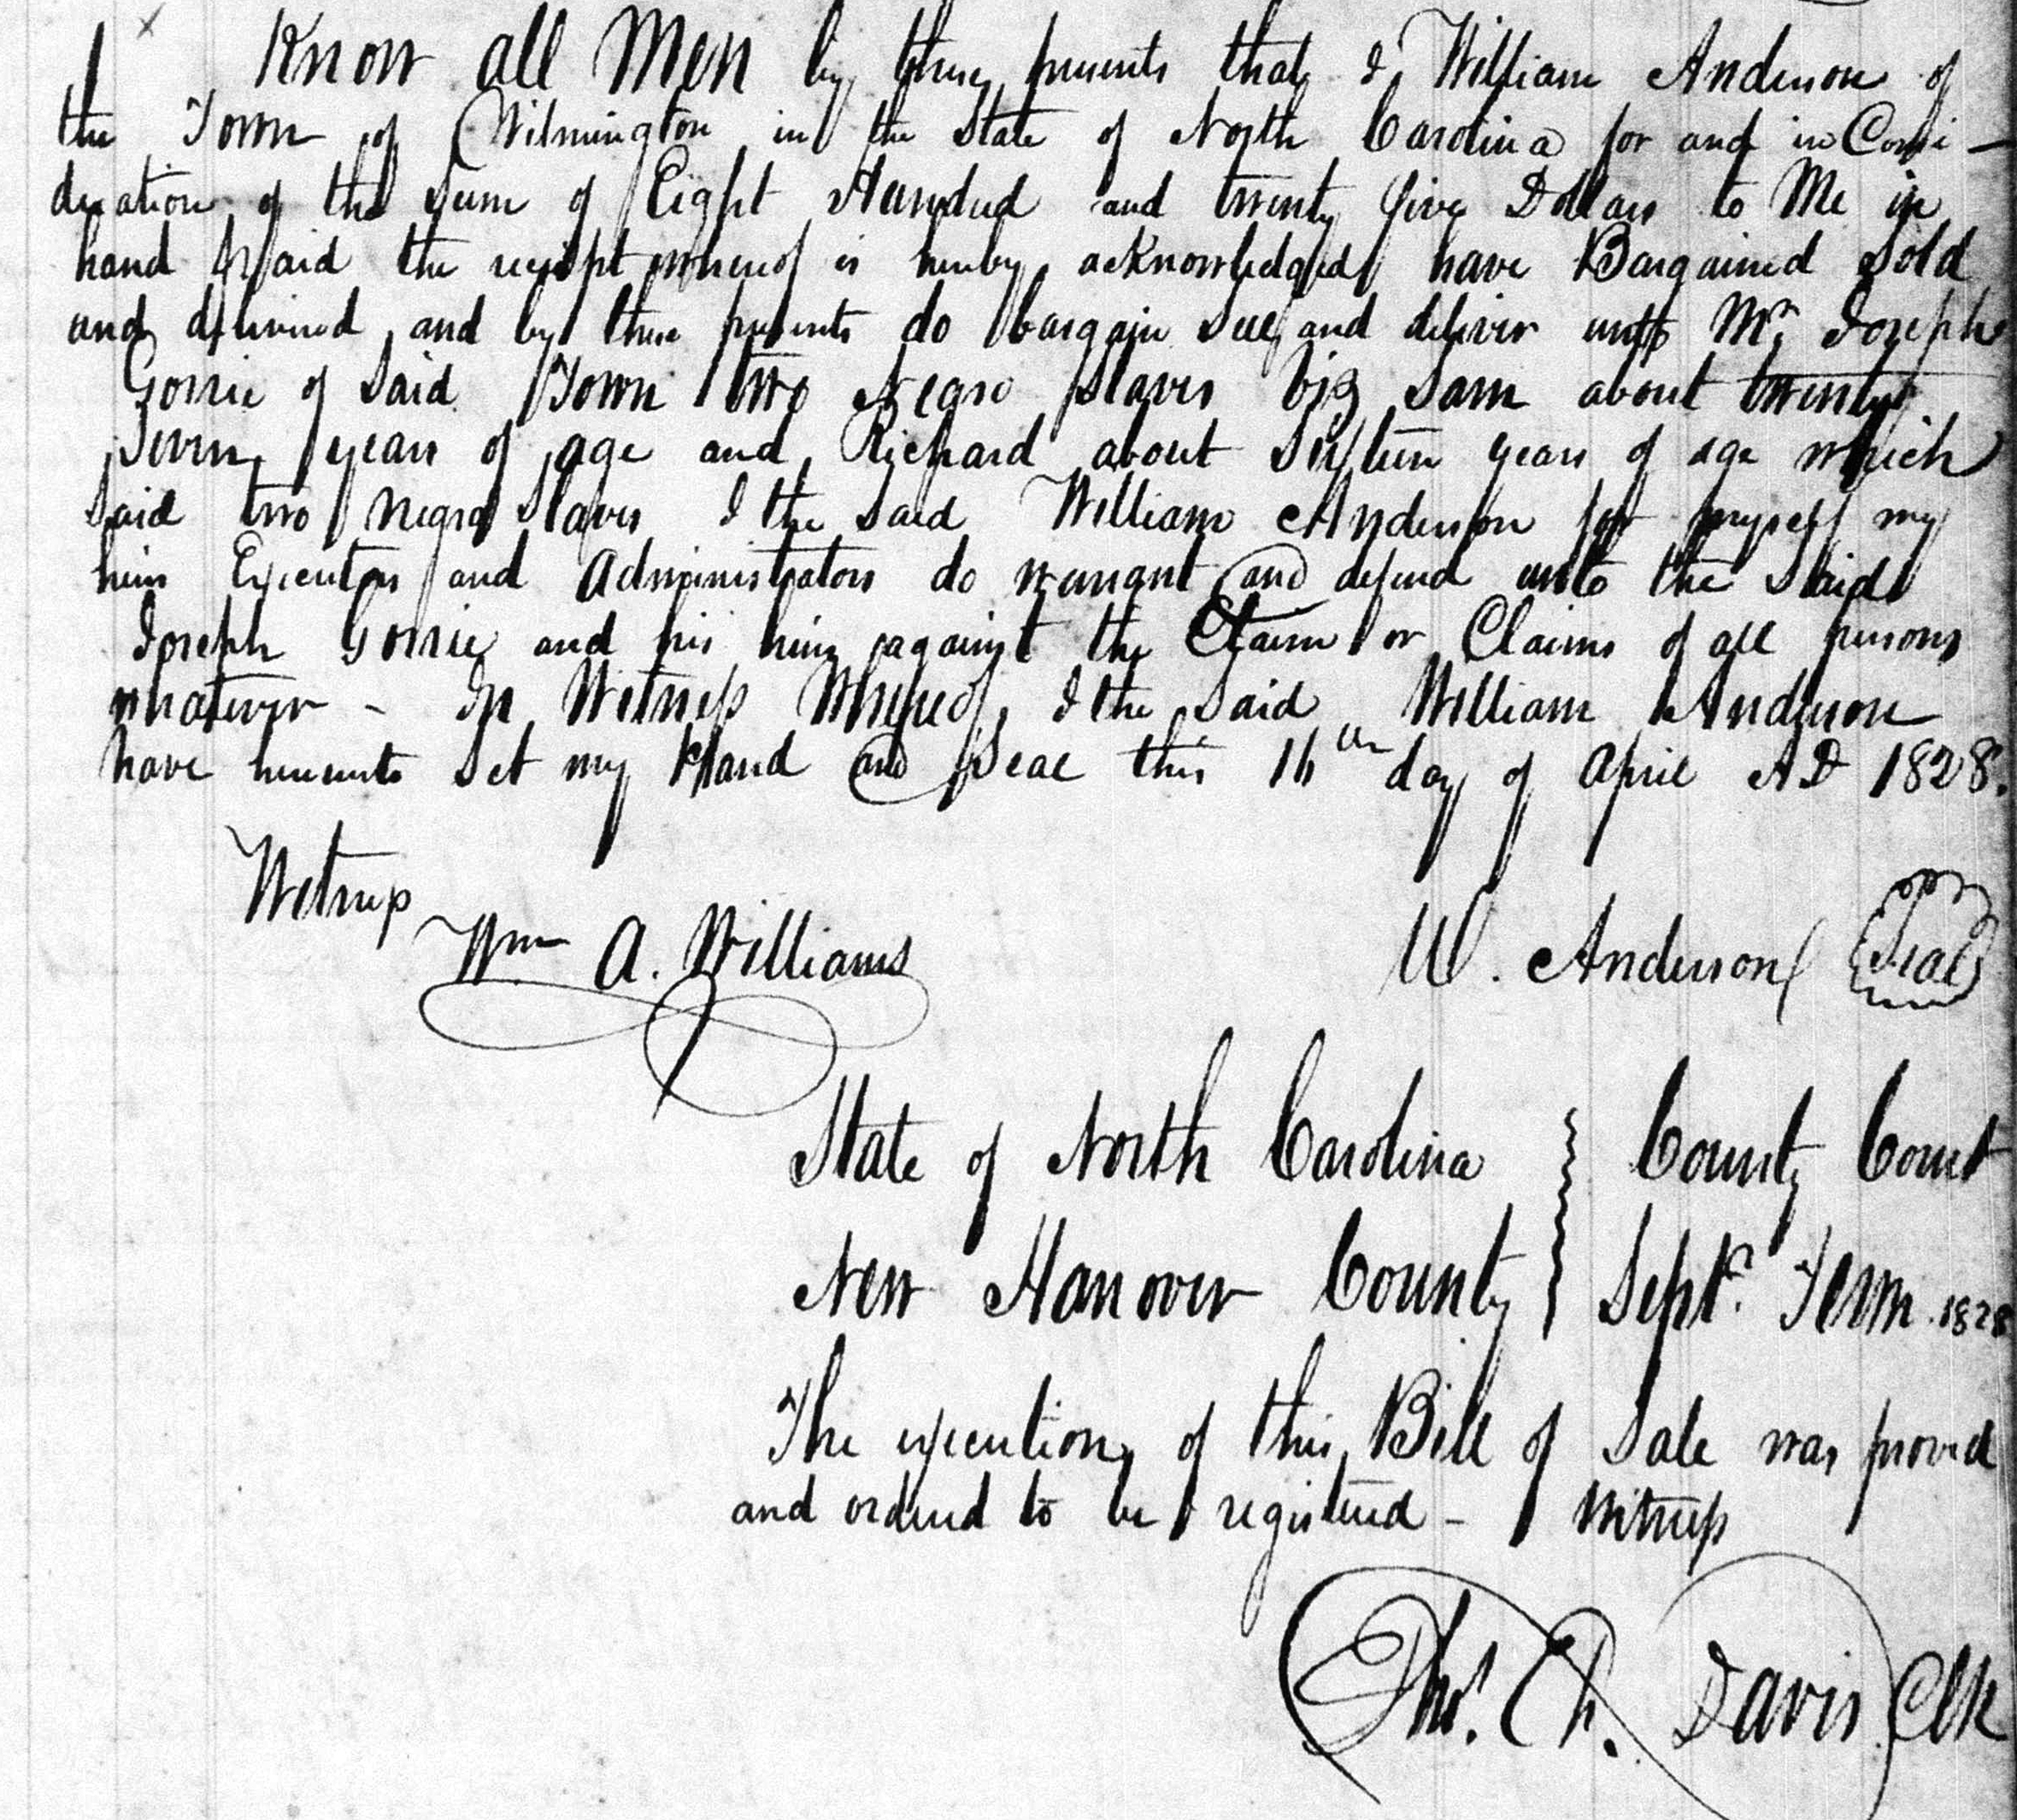 Know all Men by these presents that I William Anderson of
the Town of Wilmington in the State of North Carolina for and in Consi-
deration of the Sum of Eight Hundred and twenty five Dollars to Me in
hand paid the receipt whereof is hereby acknowledged have Bargained Sold
and delivered and by these presents do bargain Sell and deliver unto Mr. Joseph
Gorrie of Said Town two Negro Slaves viz Sam about twenty
Seven years of age and Richard about Sixteen years of age which
Said two Negro Slaves I the Said William Anderson for myself my
heirs Executors and Administrators do warrant and defend unto the Said
Joseph Gorrie and his heirs against the Claim or Claims of all persons
whatever - In Witness Whereof I the Said William Anderson
have hereunto Set my Hand and Seal this 16th day of April AD 1828.
Witness
Wm A. Williams
W. Anderson (Seal)
State of North Carolina } County Court
New Hanover County } Sepr. Term 1828
The execution of this Bill of Sale was proved
and ordered to be registered - Witness
Thos. Davis Clk